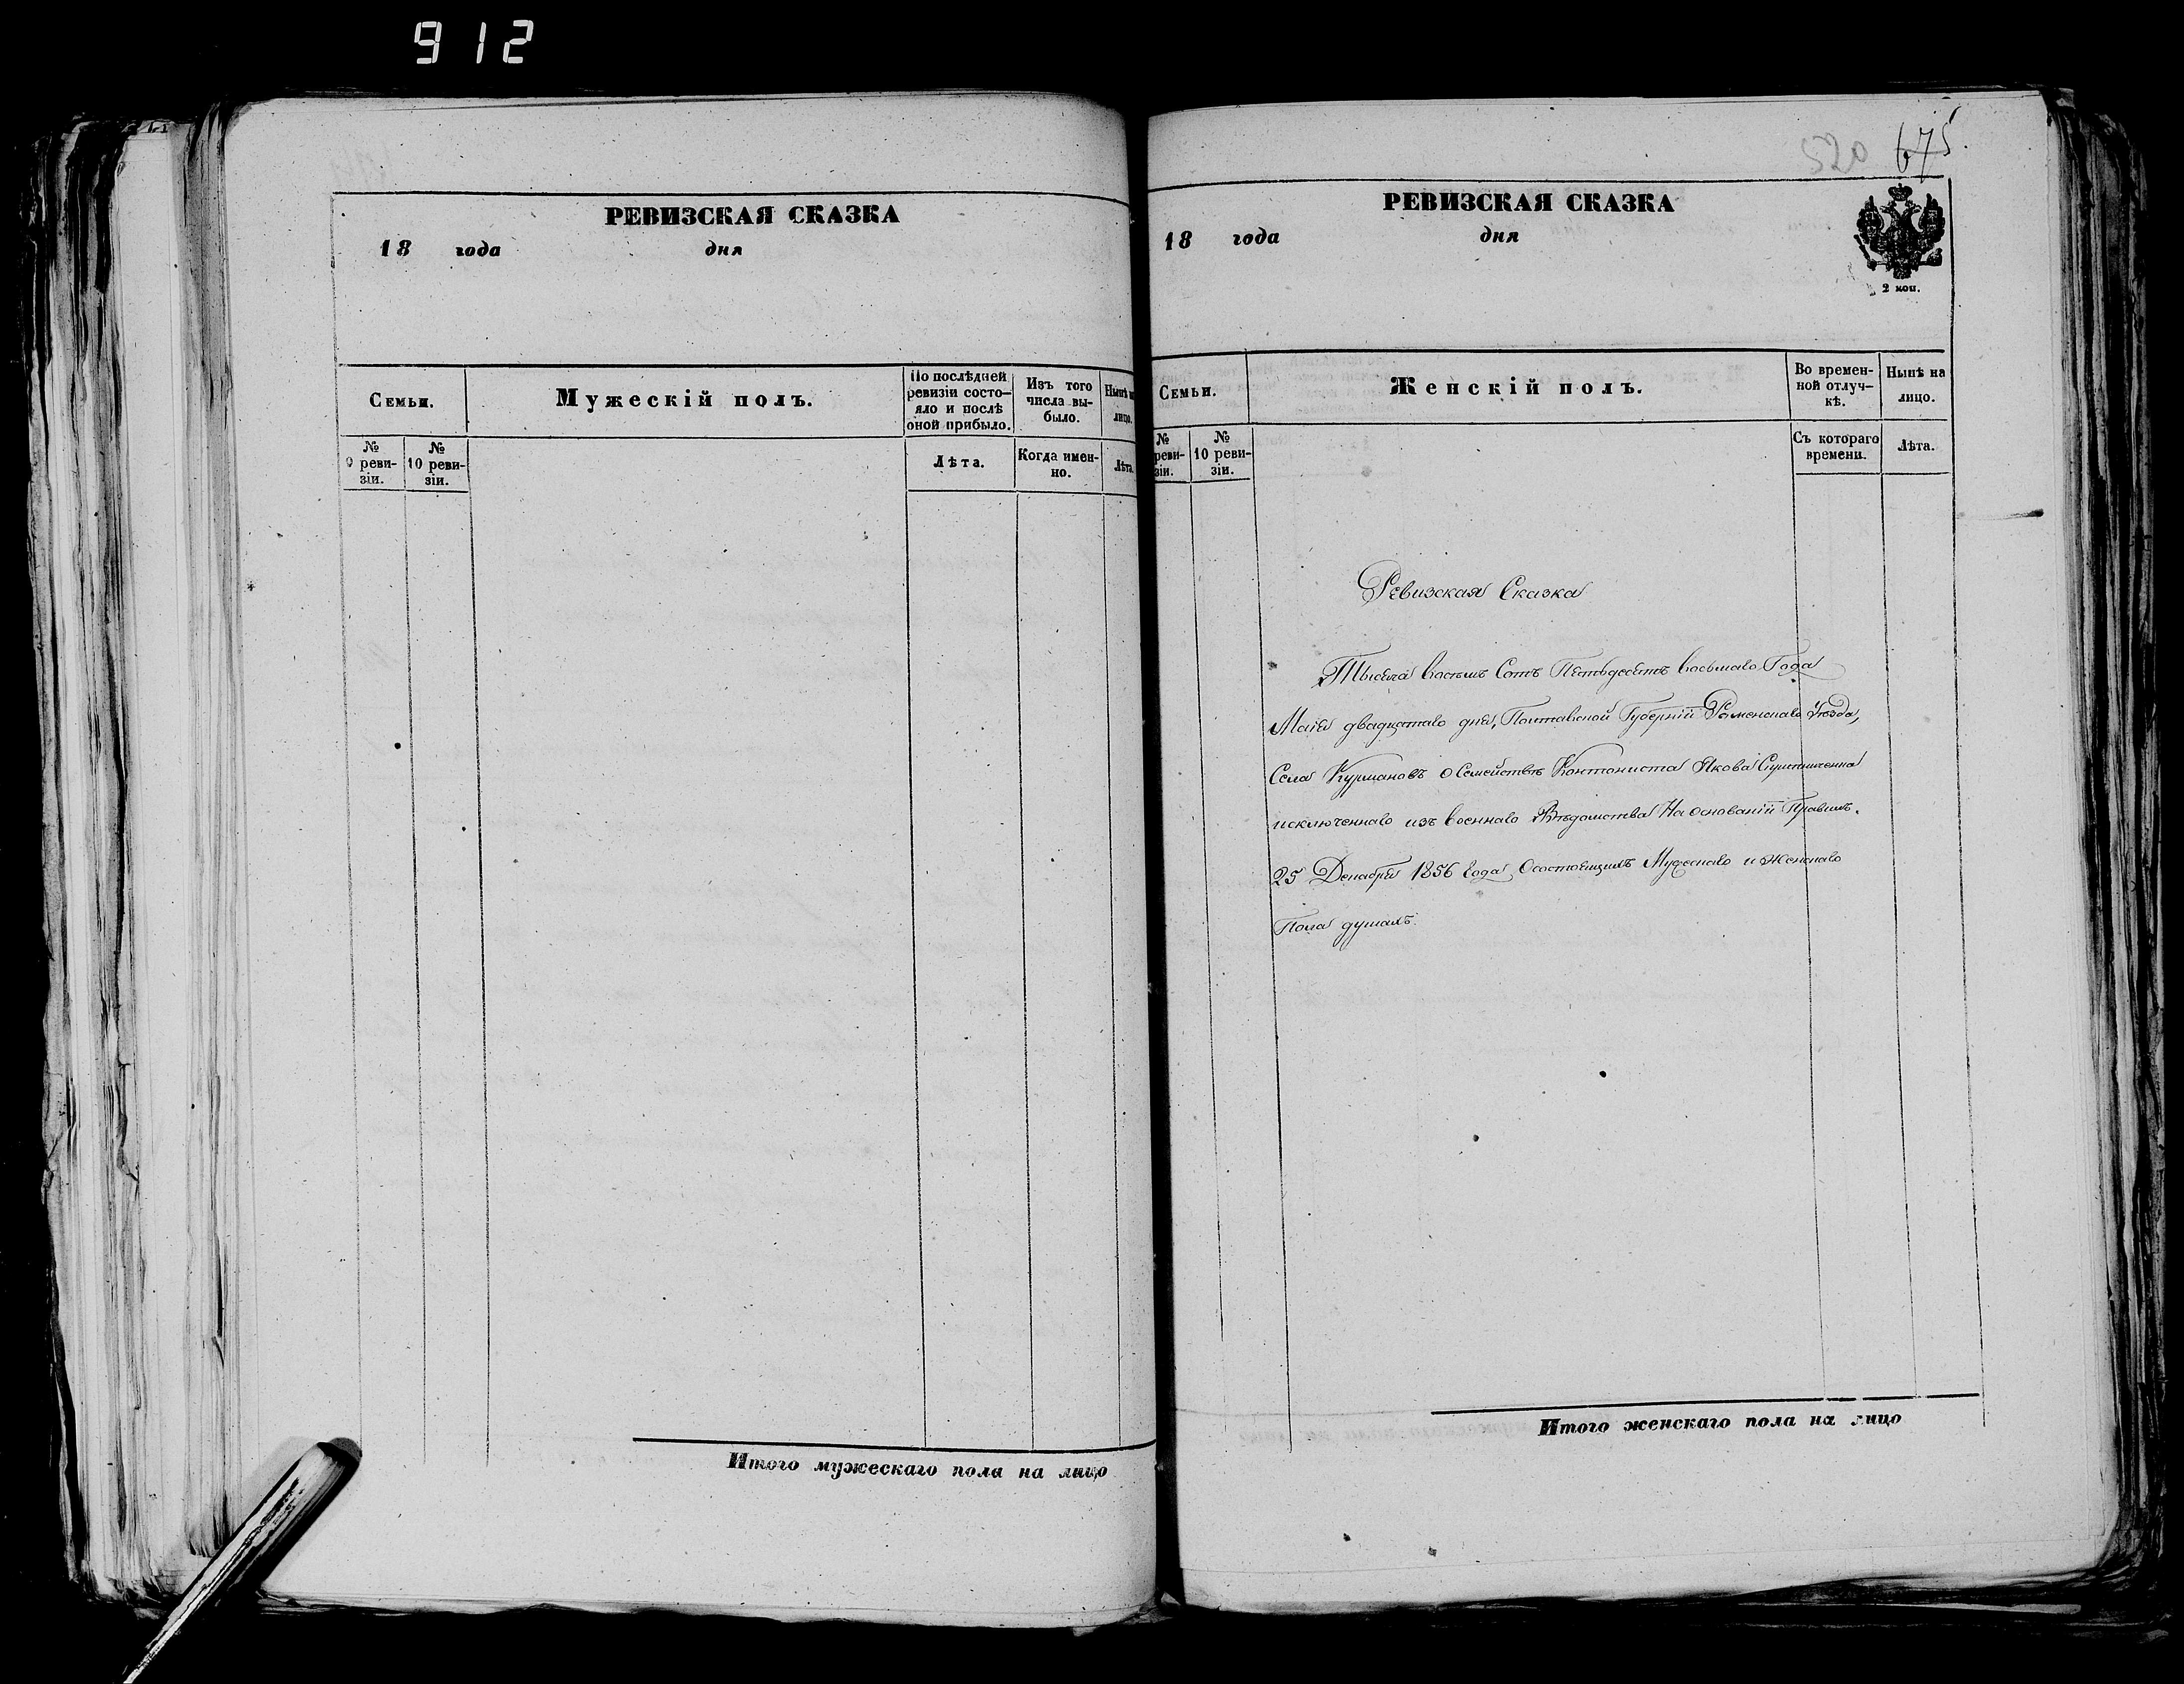 912
РЕВИЗСКАЯ СКАЗКА
18 года дня
Семьи.
Мужескій полъ.
По послѣдней ревизіи состо-
яло и послѣ
оной прибыло.
Изъ того
числа вы-
было.
Нынѣ
лицо.
№
9 реви-
зіи.
№
10 реви-
зіи.
Лѣта.
Когда имен-
но.
Лѣта.
Итого мужескаго пола на лицо
520 675.
РЕВИЗСКАЯ СКАЗКА
18 года дня
2 коп.
Семьи.
Женскій полъ.
Во времен-
ной отлуч-
кѣ.
Нынѣ на
лицо.
№
реви-
зіи.
№
10 реви-
зіи.
Съ котораго
времени.
Лѣта.
Ревизская Сказка
Тысяча восемь Сотъ Пятьдесятъ восьмаго Года
Маія двадцятаго дня, Полтавской Губерніи Роменскаго Уѣзда,
Села Курмановъ о Семействѣ Кантониста Якова
исключеннаго изъ военнаго Вѣдомства На Основаніи Правилъ.
25 Декабря 1856 года, О состоящихъ Мужескаго и Женскаго
Пола душахъ.
Итого женскаго пола на лицо